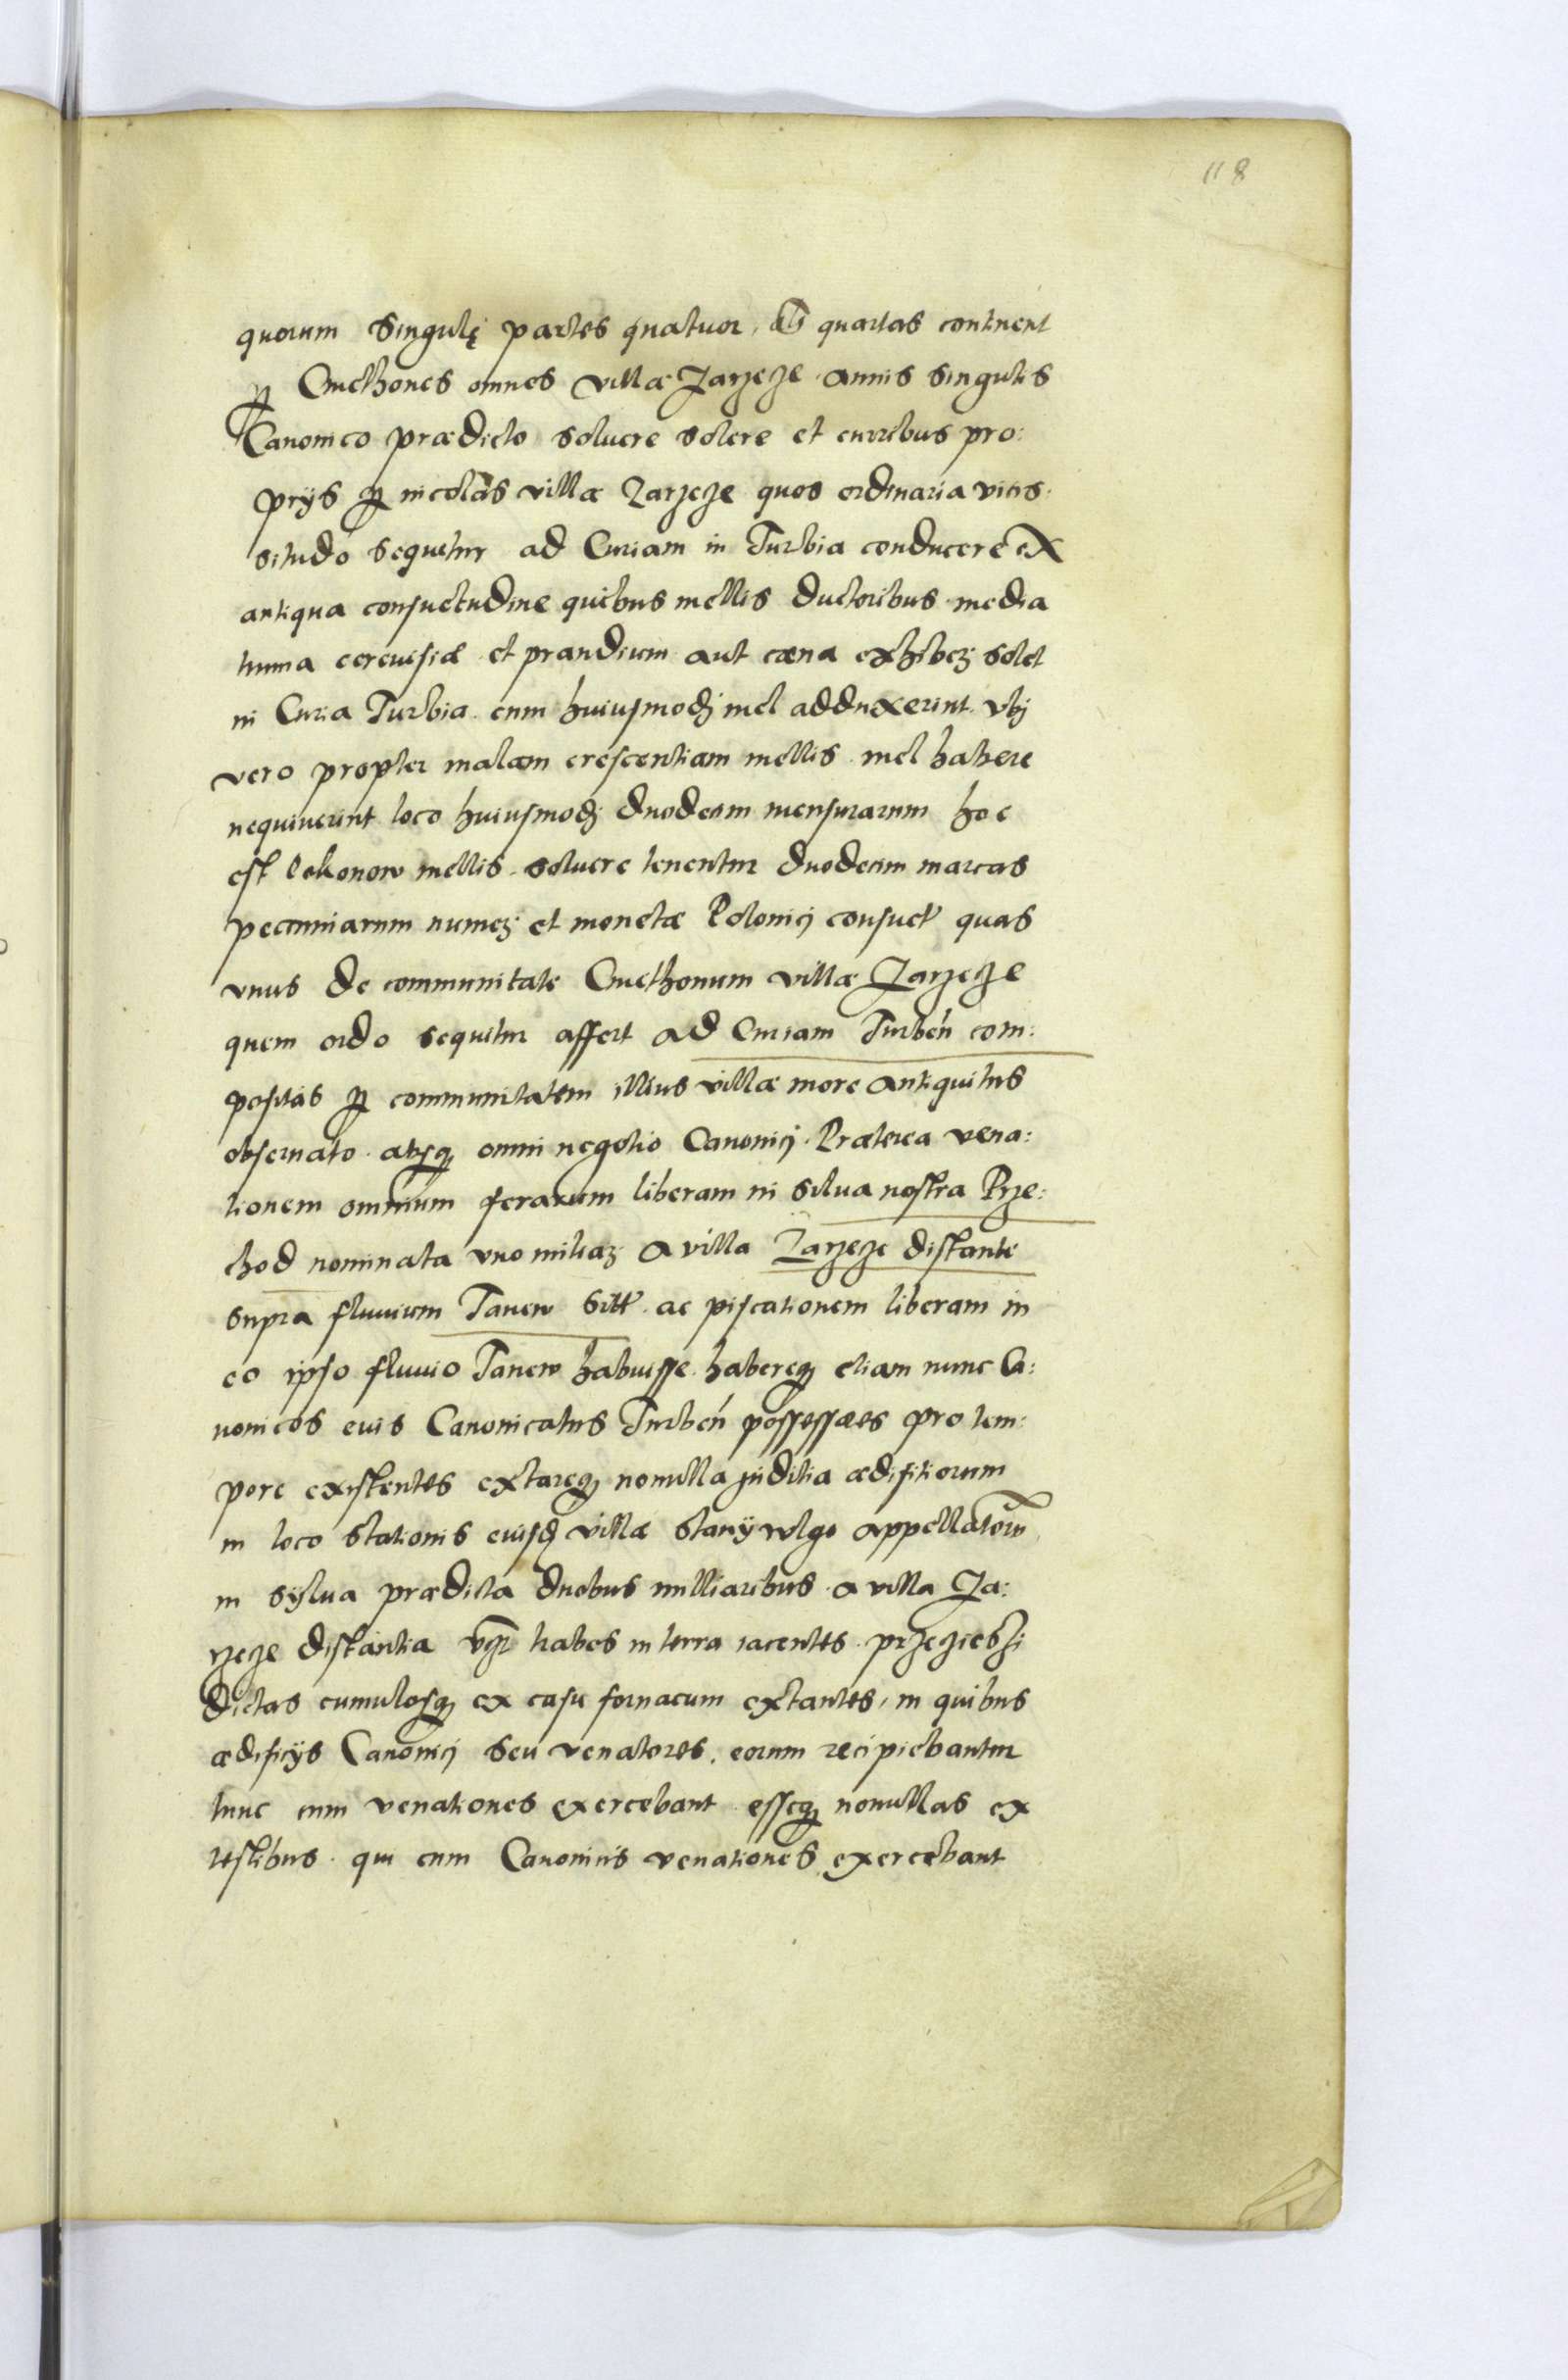 118
quorum singulę partes quatuor, als quartas continent
p Cmethones omnes villæ Zarzeze annis singulis
Canonico prædicto soluere solere et curribus pro:
prijs p incolas villæ Zarzeze quos ordinaria vicis:
situdo sequitur ad Curiam in Turbia conducere ex
antiqua consuetudine quibus mellis ductoribus media
tunna cereuisiæ et prandium aut cæna exhiberj solet
in Curia Turbia cum huiusmodj mel adduxerint. Vbj
vero propter malam crescentiam mellis mel habere
nequiuerint loco huiusmodj duodecim mensurarum hoc
est lokonow mellis soluere tenentur duodecim marcas
pecuniarum numerj et monetæ Polonicj consuet quas
vnus de communitate Cmethonum villæ Zarzeze
quem ordo sequitur affert ad Curiam Turbeń com:
positas p communitatem illius villæ more antiquitus
obseruato absq omni negotio Canonicj. Præterea vena:
tionem omnium ferarum liberam in silua nostra Prze:
chod nominata vno miliarj a villa Zarzeze distante
supra fluuium Tanew sitt ac piscationem liberam in
eo ipso fluuio Tanew habuisse habereq etiam nunc Ca:
nonicos euis Canonicatus Turbeń possessores pro tem:
pore existentes extareq nonulla inditia ædifitiorum
in loco stationis eiusd villæ stany wlgo appellatorum
in sylua prædicta duobus milliaribus a villa Za:
rzeze distantia vzr trabes in terra iacentes przeziesi
dictas cumulosq ex casu fornacum extantes, in quibus
ædificijs Canonicj seu venatores eorum recipiebantur
tunc cum venationes exercebant esseq nonullas ex
testibus qui cum Canonicis venationes exercebant